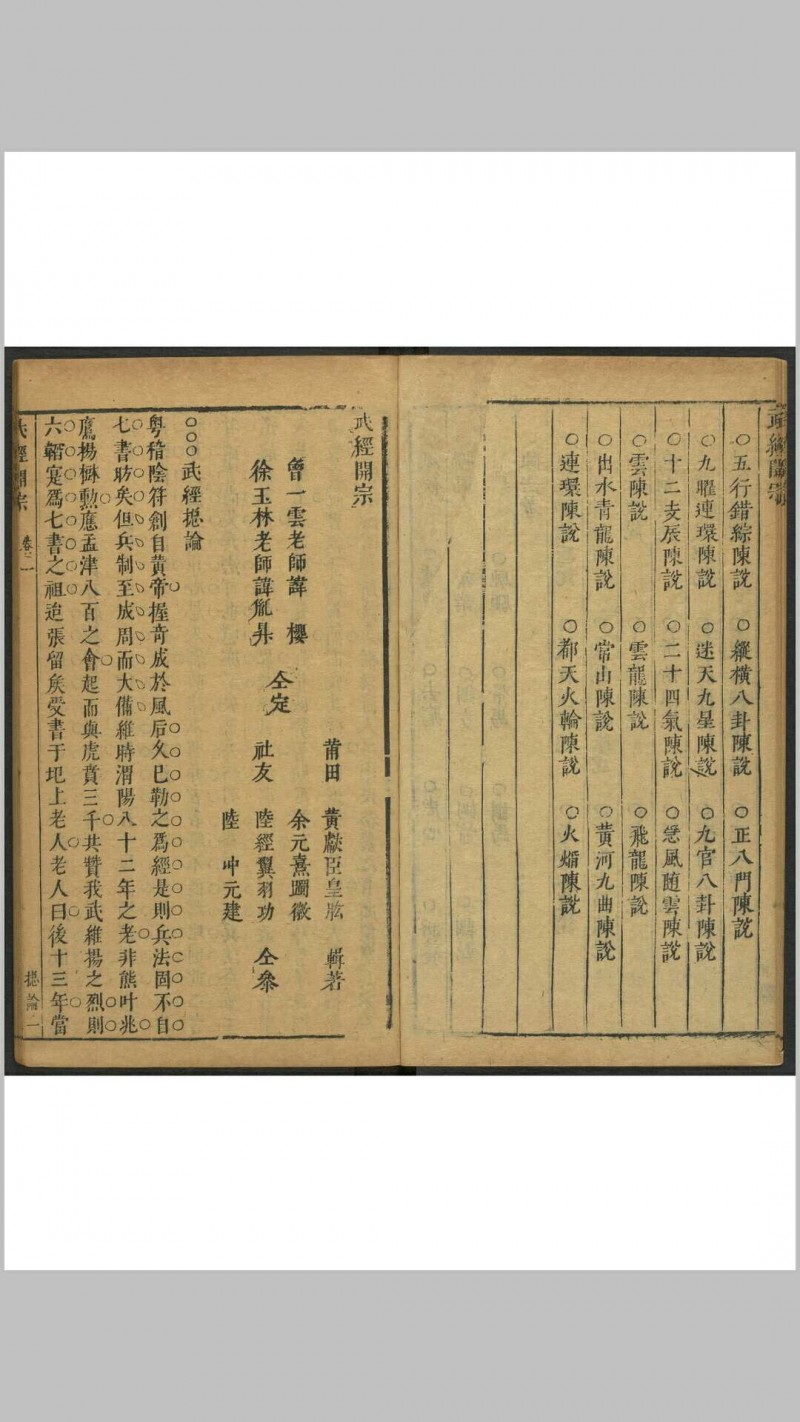 武經開宗
○五行錯綜陳說　○縱橫八卦陳說　○正八門陳說
○九曜連環陳說　○迷天九星陳說　○九宮八卦陳說
○十二支辰陳說　○二十四氣陳說　○急風随雲陳說
○雲陳說　○雲龍陳說　○飛龍陳說
○出水青龍陳說　○常山陳說　○黃河九曲陳說
○連環陳說　○都天火輪陳說　○火熖陳說
武經開宗
莆田　黃獻臣皇肱　輯著
曾一雲老師諱櫻
徐玉林老師諱胤昇
仝定
余元熹
社友　陸經翼羽功　仝叅
陸　冲元建
○○○武經摠論
粤稽陰符創自黃帝握竒成於風后久已勒之爲經是則兵法固不自
七書昉矣但兵制至成周而大備維時渭陽八十二年之老非熊叶兆
鷹揚楙勲應孟津八百之會起而與虎賁三千共贊我武維揚之烈則
六韜寔爲七書之祖迨張留矦受書于圯上老人老人曰後十三年當
武經開宗　卷之一　摠論　一